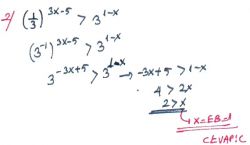 2/ (1/3)^(3x-5) > 3^(1-x)
(3^-1)^(3x-5) > 3^(1-x)
3^(-3x+5) > 3^(1-x) → -3x+5 > 1-x
4 > 2x
2 > x
↳ x=EB=1
CEVAP: C